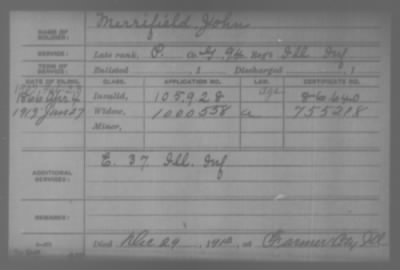 NAME OF SOLDIER: Merrifield John
SERVICE: Late rank, P. Co. G, 94 Reg't Ill Inf
TERM OF SERVICE: Enlisted , 1 Discharged , 1
DATE OF FILING. CLASS. APPLICATION NO. LAW. CERTIFICATE NO.
1866 Apr 4 Invalid, 105.928 86640
age
1913 Jan 27 Widow, 1000558 a 755218
Minor,
ADDITIONAL SERVICES: E. 37 Ill. Inf
REMARKS:
Died Dec 29 1910, at Farmer City, Ill